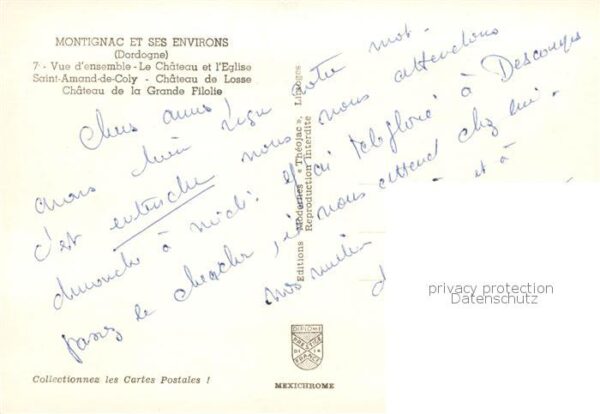 MONTIGNAC ET SES ENVIRONS
(Dordogne)
7 - Vue d'ensemble - Le Château et l'Eglise
Saint-Amand-de-Coly - Château de Losse
Château de la Grande Filolie
Chers amis !
avons bien reçu votre mot.
c'est entendu nous vous attendons
dimanche à midi. J'ai téléphoné à Descouges
passez le chercher, il vous attend chez lui.
et à
Editions Modernes « Théojac », Limoges
Reproduction Interdite
privacy protection
Datenschutz
DIPLOME
PRESTIGE
DE LA
FRANCE
Collectionnez les Cartes Postales !
MEXICHROME